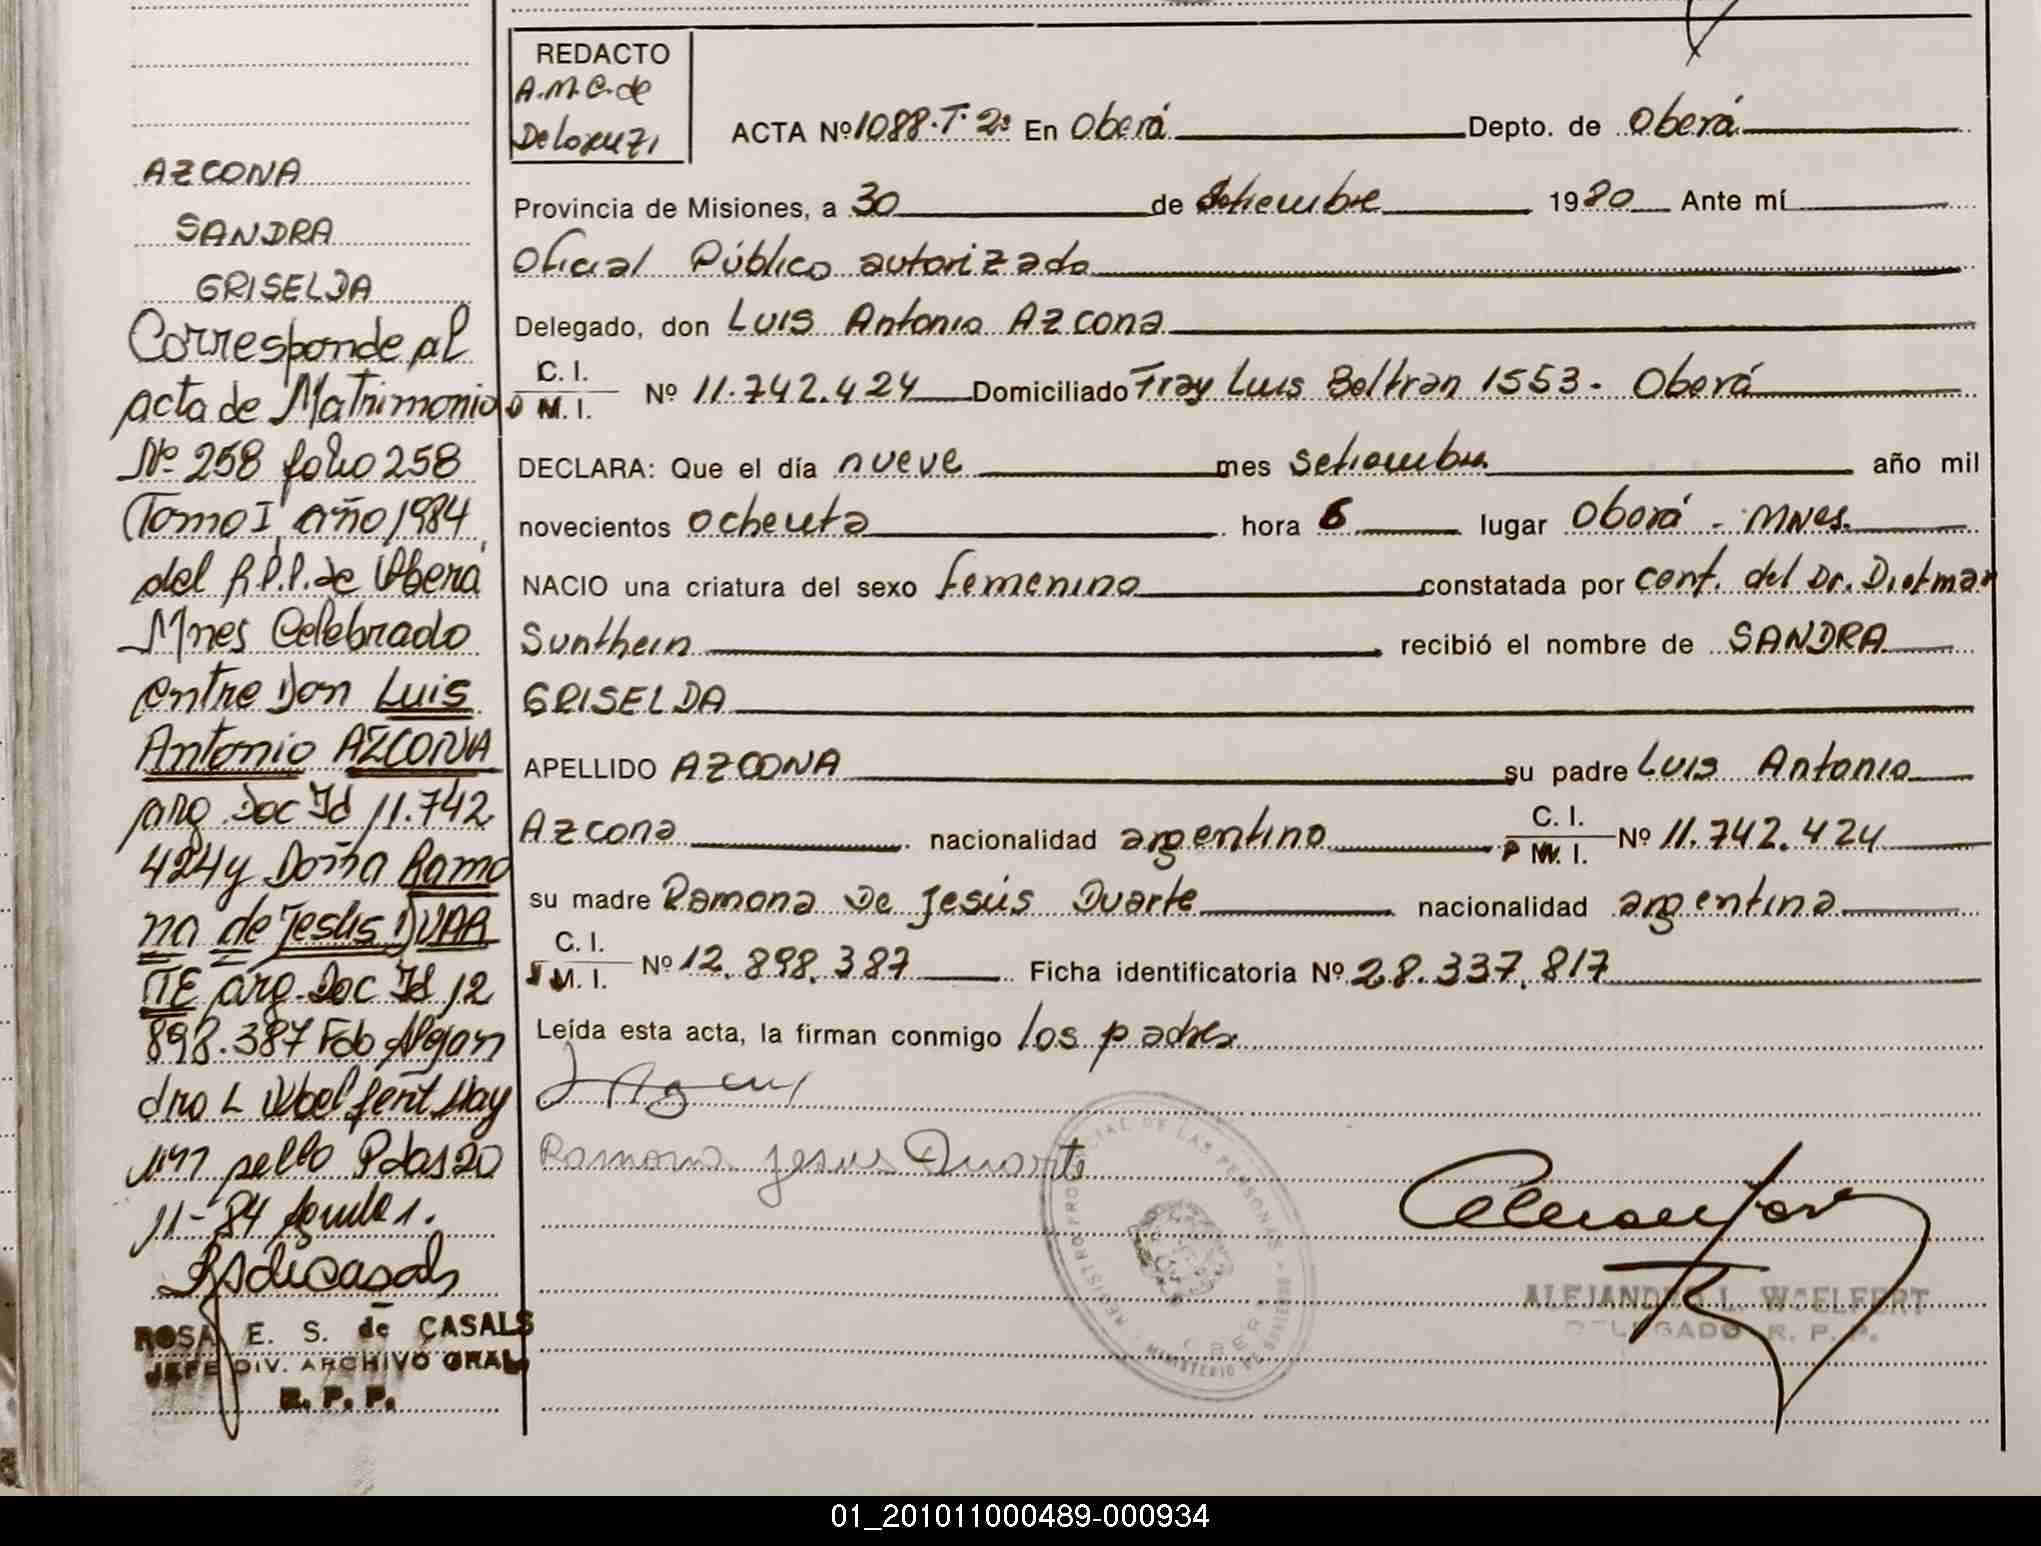 REDACTO
A.M.C. de
Delorenzi
ACTA Nº 1088. T. 2º En Oberá Depto. de Oberá
Provincia de Misiones, a 30 de Setiembre 1980 Ante mí
Oficial Público autorizado
Delegado, don Luis Antonio Azcona
C. I.
M. I. Nº 11.742.424 Domiciliado Fray Luis Beltran 1553 - Oberá
DECLARA: Que el día nueve mes Setiembre año mil
novecientos ochenta hora 6 lugar Oberá - Mnes.
NACIO una criatura del sexo femenino constatada por cert. del Dr. Dietman
Sunthein recibió el nombre de SANDRA
GRISELDA
APELLIDO AZCONA su padre Luis Antonio
Azcona nacionalidad argentino C. I.
M. I. Nº 11.742.424
su madre Ramona De Jesús Duarte nacionalidad argentina
C. I.
M. I. Nº 12.898.387 Ficha identificatoria Nº 28.337.817
Leída esta acta, la firman conmigo los padres
Ramona Jesus Duarte
REGISTRO PROVINCIAL DE LAS PERSONAS
MINISTERIO DE GOBIERNO
OBERA
ALEJANDRO L. WOELFERT
DELEGADO R. P. P.
AZCONA
SANDRA
GRISELDA
Corresponde al
acta de Matrimonio
Nº 258 folio 258
Tomo I, año 1984,
del R.P.P. de Oberá
Mnes Celebrado
entre Don Luis
Antonio AZCONA
arg. Doc Id 11.742
424 y Doña Ramo
na de Jesús DUAR
TE arg. Doc Id 12
898.387 Fdo Alejan
dro L Woelfert Hay
un sello Pdas 20
11-84
ROSA E. S. de CASALS
JEFE DIV. ARCHIVO GRAL.
R. P. P.
01_201011000489-000934